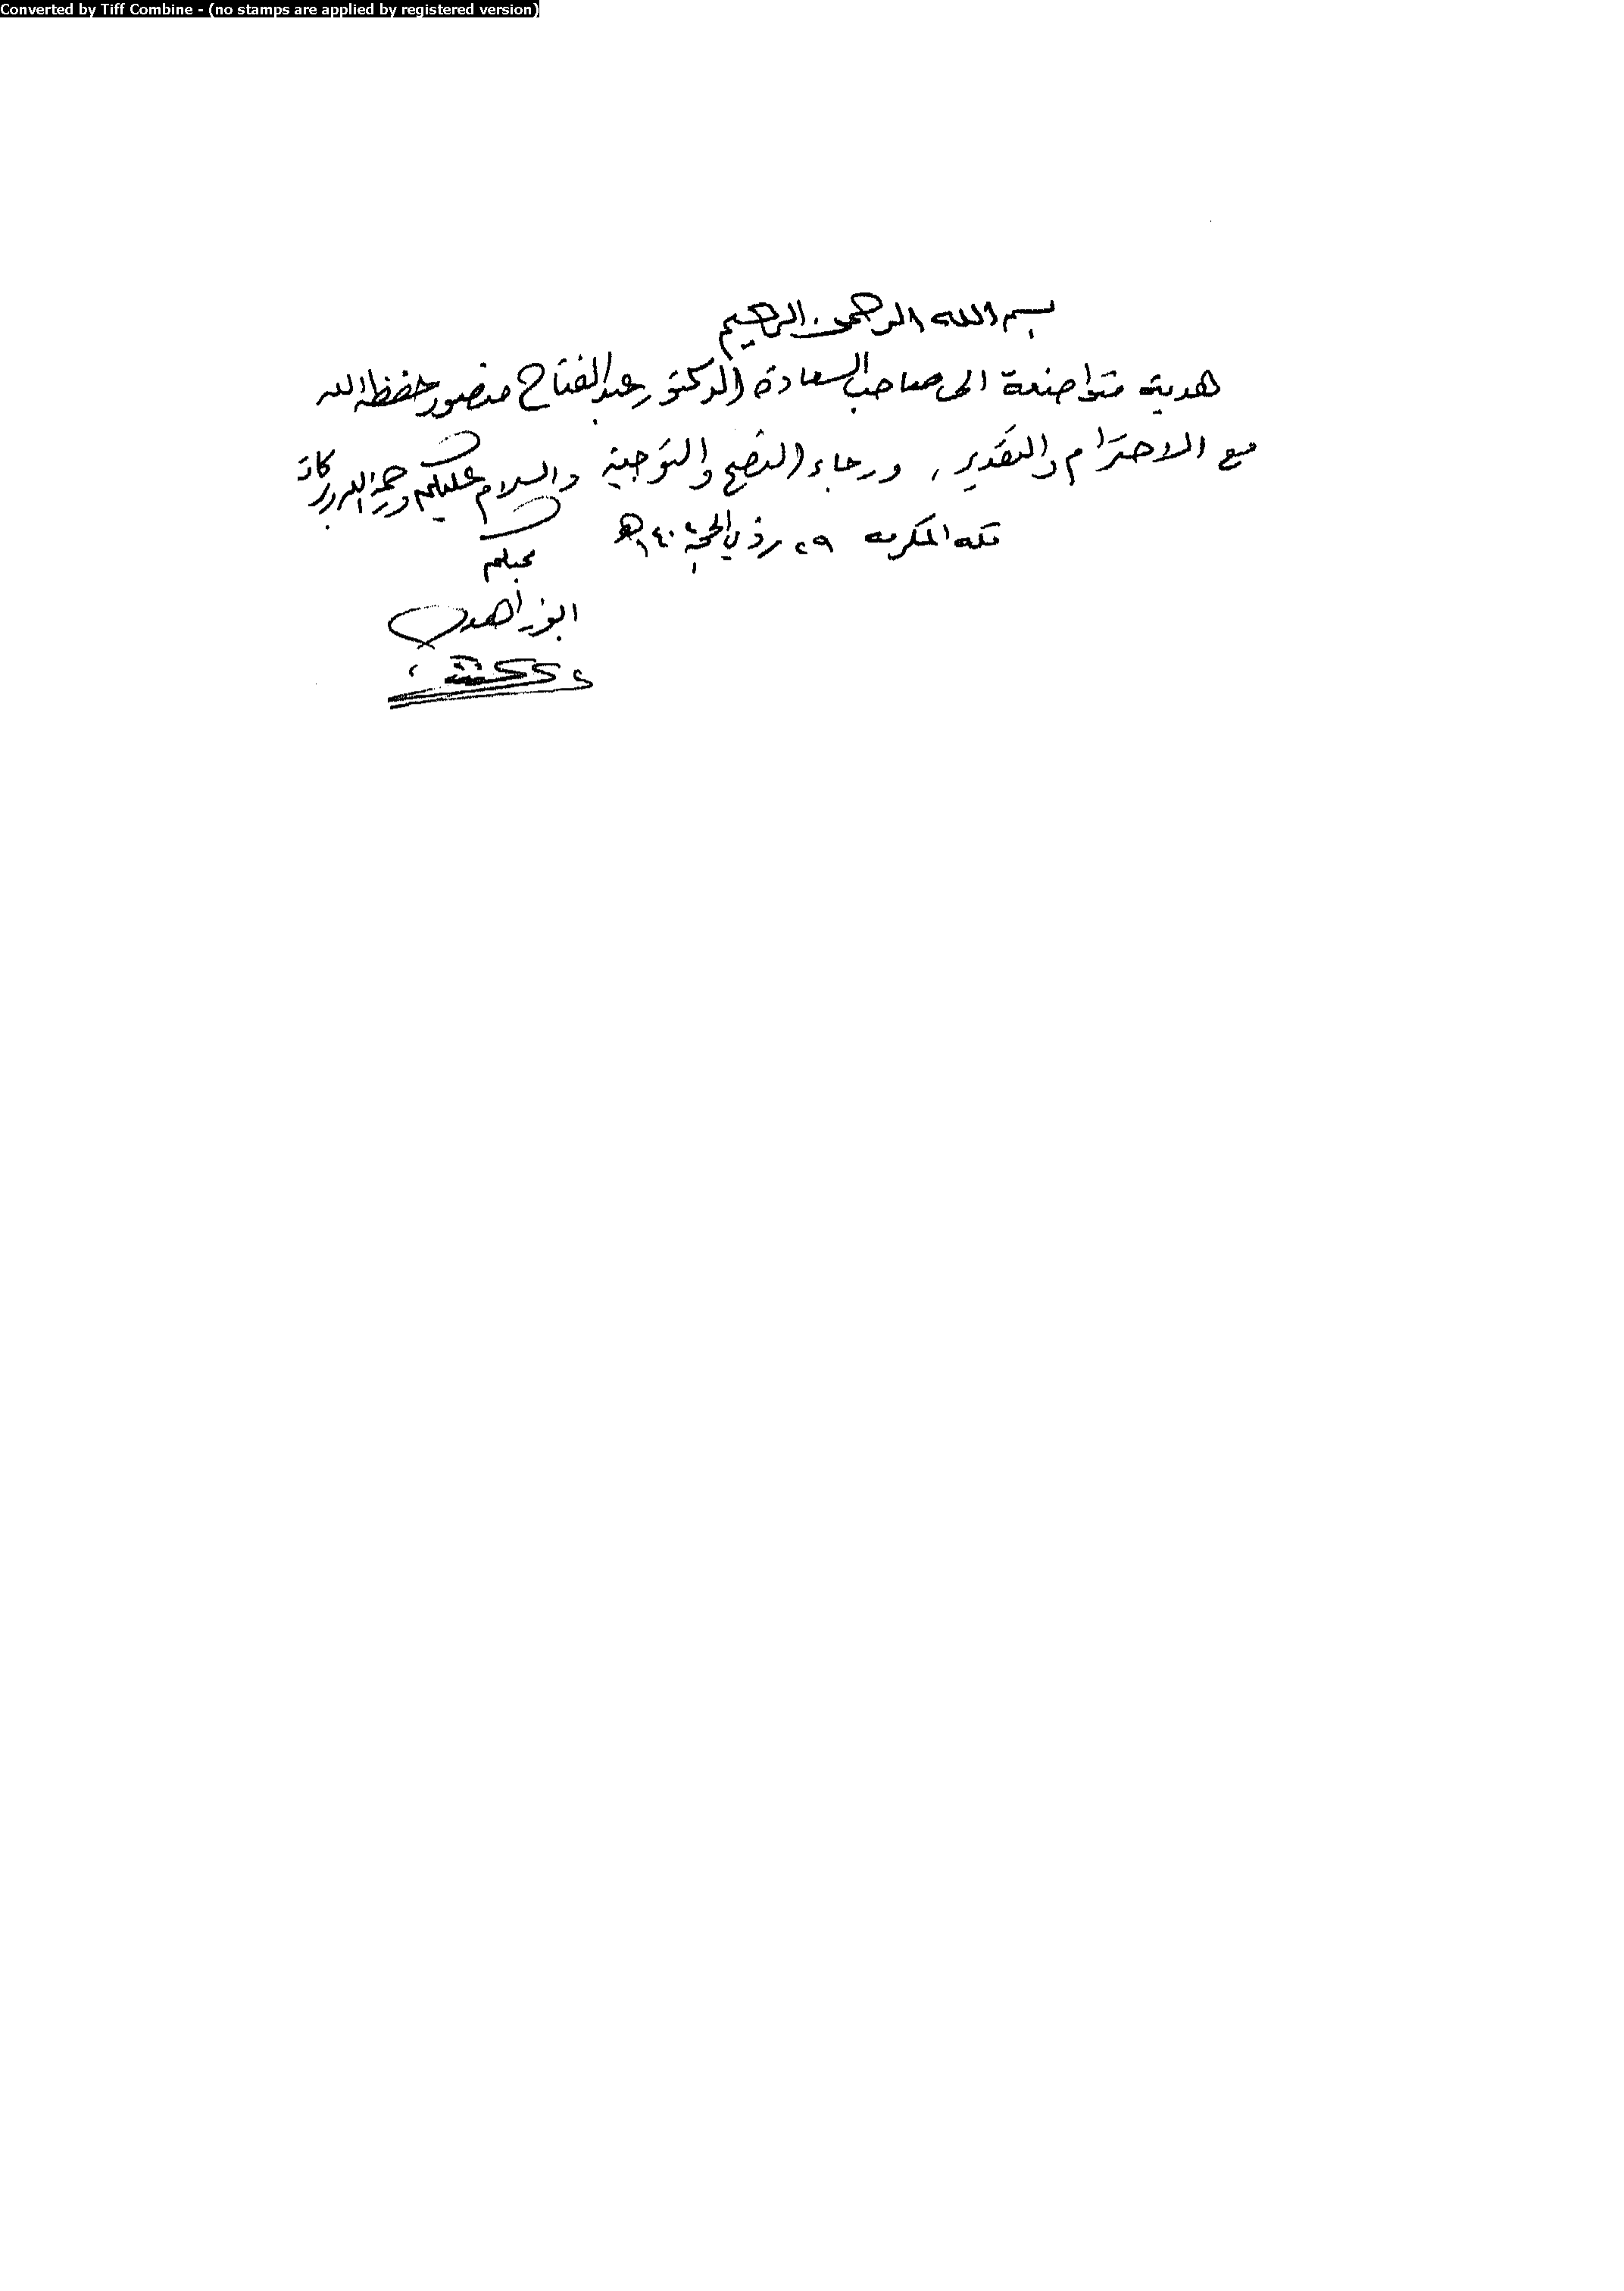 Converted by Tiff Combine - (no stamps are applied by registered version)
بسم الله الرحمن الرحيم
هدية متواضعة الى صاحب السعادة الدكتور عبد الفتاح منصور حفظه الله
مع الاحترام والتقدير، ورجاء النصح والتوجيه والسلام عليكم ورحمة الله وبركاته
مكه المكرمه ٢٩ ذي الحجة
محبكم
ابو زاهد